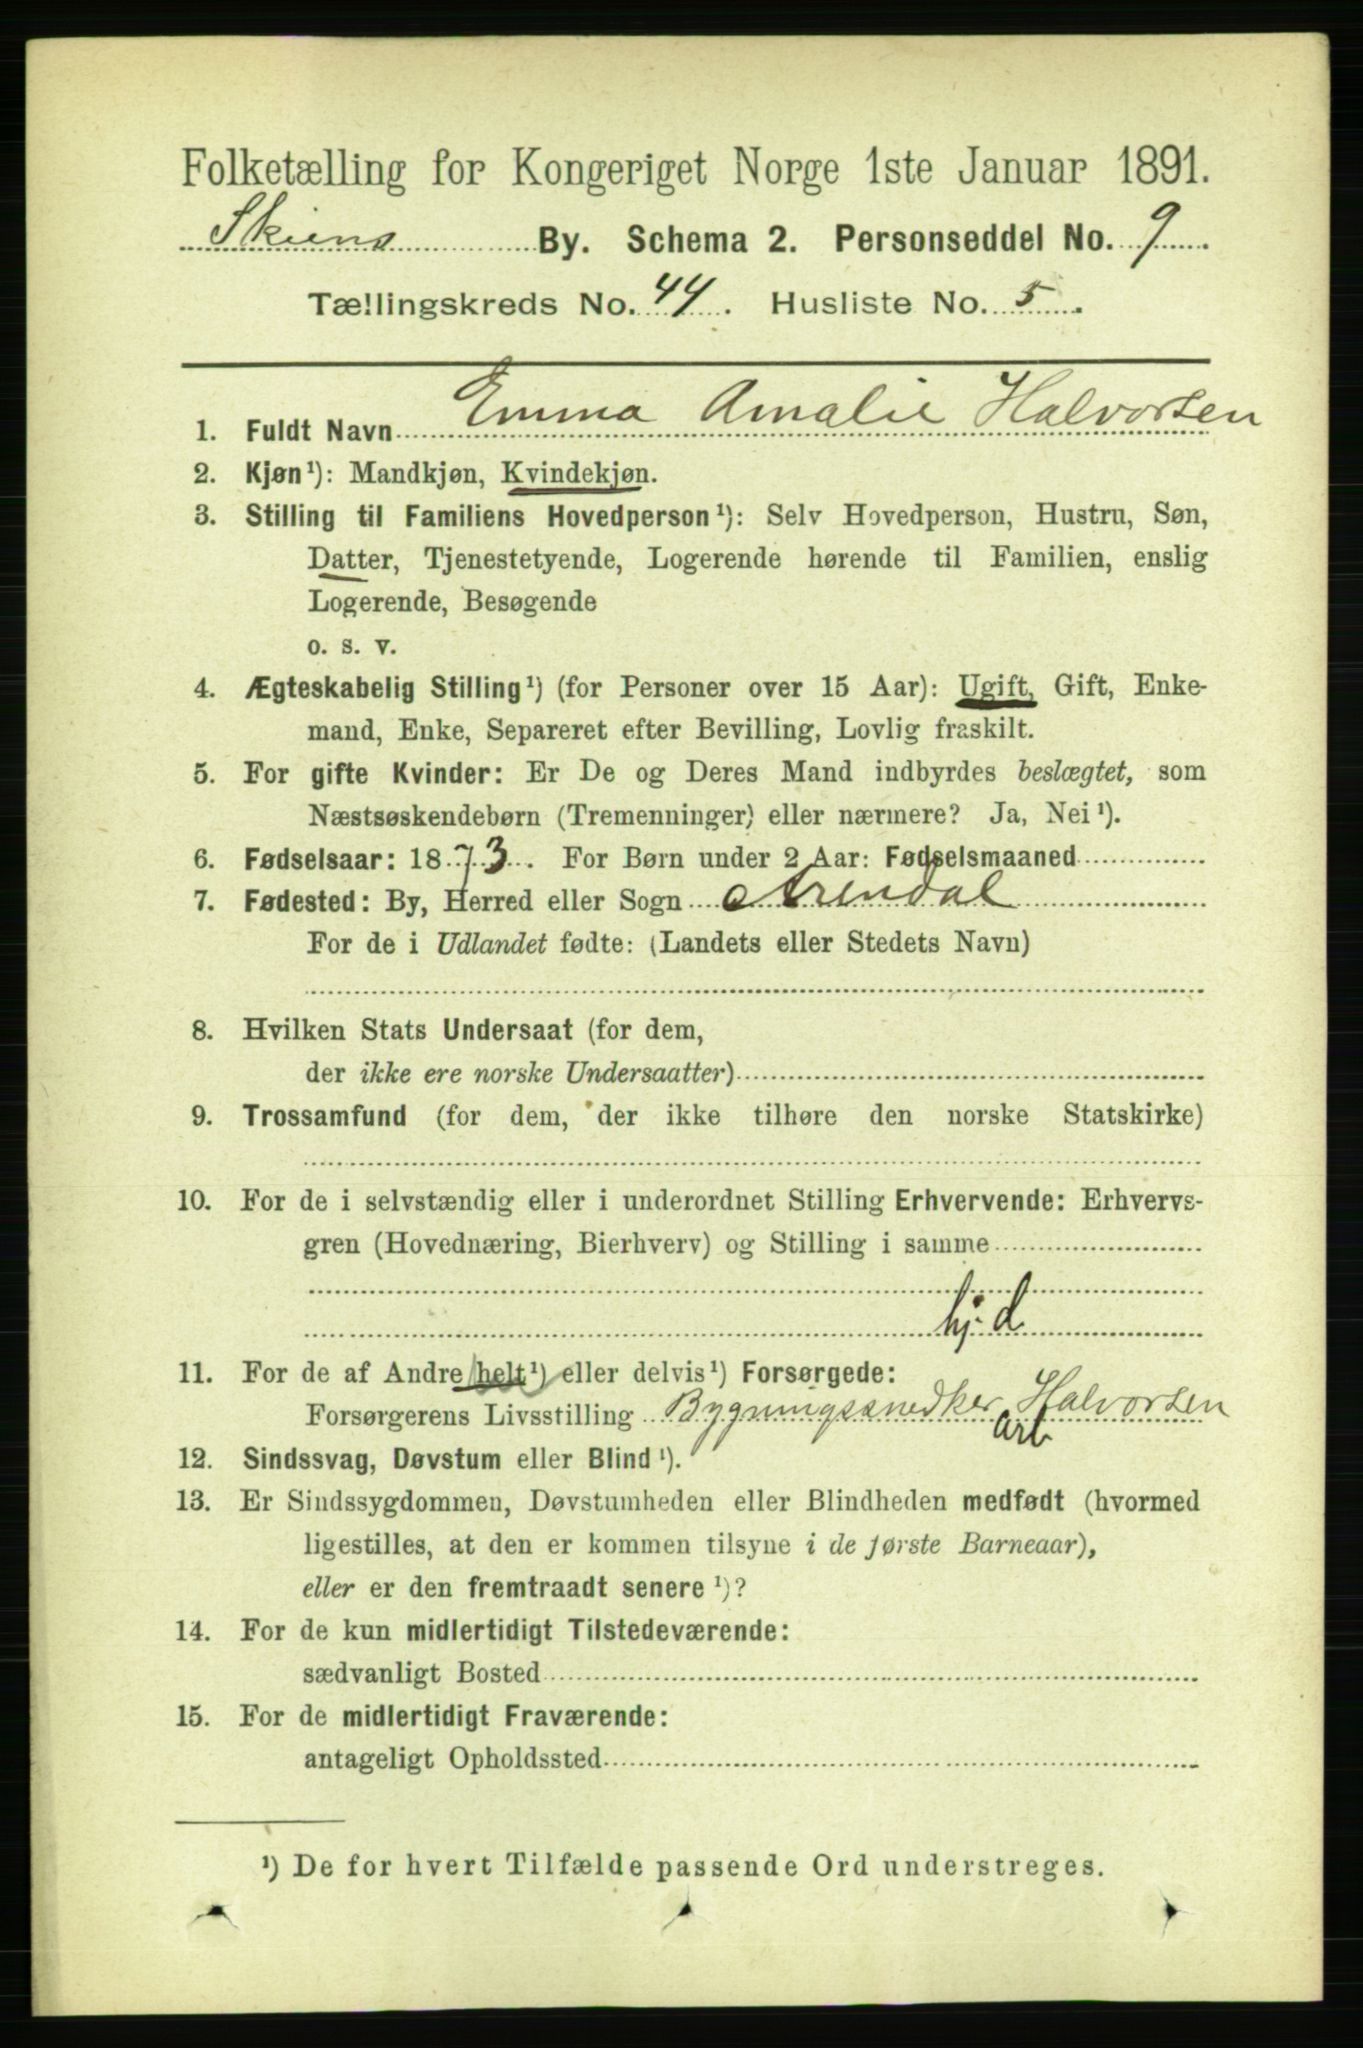 Folketælling for Kongeriget Norge 1ste Januar 1891.
Skiens By. Schema 2. Personseddel No. 9
Tællingskreds No. 44. Husliste No. 5.
1. Fuldt Navn Emma Amalie Halvorsen
2. Kjøn¹): Mandkjøn, Kvindekjøn.
3. Stilling til Familiens Hovedperson¹): Selv Hovedperson, Hustru, Søn,
Datter, Tjenestetyende, Logerende hørende til Familien, enslig
Logerende, Besøgende
o. s. v.
4. Ægteskabelig Stilling¹) (for Personer over 15 Aar): Ugift, Gift, Enke-
mand, Enke, Separeret efter Bevilling, Lovlig fraskilt.
5. For gifte Kvinder: Er De og Deres Mand indbyrdes beslægtet, som
Næstsøskendebørn (Tremenninger) eller nærmere? Ja, Nei¹).
6. Fødselsaar: 1873. For Børn under 2 Aar: Fødselsmaaned
7. Fødested: By, Herred eller Sogn Arendal
For de i Udlandet fødte: (Landets eller Stedets Navn)
8. Hvilken Stats Undersaat (for dem,
der ikke ere norske Undersaatter)
9. Trossamfund (for dem, der ikke tilhøre den norske Statskirke)
10. For de i selvstændig eller i underordnet Stilling Erhvervende: Erhvervs-
gren (Hovednæring, Bierhverv) og Stilling i samme
hj. d
11. For de af Andre helt¹) eller delvis¹) Forsørgede:
Forsørgerens Livsstilling Bygningssnedker Halvorsen
arb
12. Sindssvag, Døvstum eller Blind¹).
13. Er Sindssygdommen, Døvstumheden eller Blindheden medfødt (hvormed
ligestilles, at den er kommen tilsyne i de første Barneaar),
eller er den fremtraadt senere¹)?
14. For de kun midlertidigt Tilstedeværende:
sædvanligt Bosted
15. For de midlertidigt Fraværende:
antageligt Opholdssted
¹) De for hvert Tilfælde passende Ord understreges.